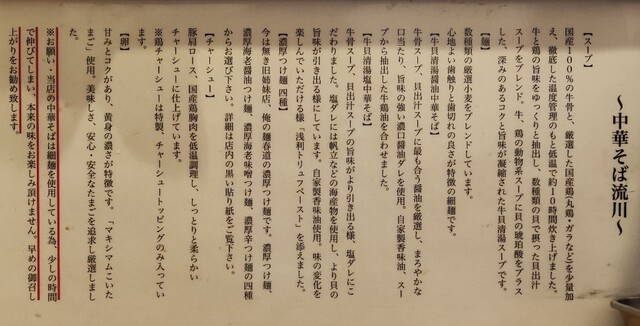 ～中華そば流川～
【スープ】
国産100％の牛骨と、厳選した国産鶏(丸鶏・ガラなど)を少量加
え、徹底した温度管理のもと低温で約10時間炊き上げました。
牛と鶏の旨味をゆっくりと抽出し、数種類の貝で摂った貝出汁
スープをブレンド。牛、鶏の動物系スープに貝の琥珀酸をプラス
した、深みのあるコクと旨味が凝縮された牛貝清湯スープです。
【麺】
数種類の厳選小麦をブレンドしています。
心地よい歯触りと歯切れの良さが特徴の細麺です。
【牛貝清湯醤油中華そば】
牛骨スープ、貝出汁スープに最も合う醤油を厳選し、まろやかな
口当たり、旨味の強い濃口醤油ダレを使用。自家製香味油、スー
プから抽出した牛鶏油を合わせました。
【牛貝清湯塩中華そば】
牛骨スープ、貝出汁スープの旨味がより引き出る様、塩ダレにこ
だわりました。塩ダレには帆立などの海産物を使用し、より貝の
旨味が引き出る様にしています。自家製香味油使用、味の変化を
楽しんでいただける様「浅利トリュフペースト」を添えました。
【濃厚つけ麺 四種】
今は無き旧姉妹店、俺の麺春道の濃厚つけ麺です。濃厚つけ麺、
濃厚海老醤油つけ麺、濃厚海老味噌つけ麺、濃厚辛つけ麺の四種
からお選び下さい。詳細は店内の黒い貼り紙をご覧下さい。
【チャーシュー】
豚肩ロース、国産鶏胸肉を低温調理し、しっとりと柔らかい
チャーシューに仕上げています。
※鶏チャーシューは特製、チャーシュートッピングのみ入ってい
ます。
【卵】
甘みとコクがあり、黄身の濃さが特徴です。「マキシマムこいた
まご」使用。美味しさ、安心・安全なたまごを追求し厳選しまし
た。
※お願い・当店の中華そばは細麺を使用している為、少しの時間
で伸びてしまい、本来の味をお楽しみ頂けません。早めの御召し
上がりをお勧め致します。